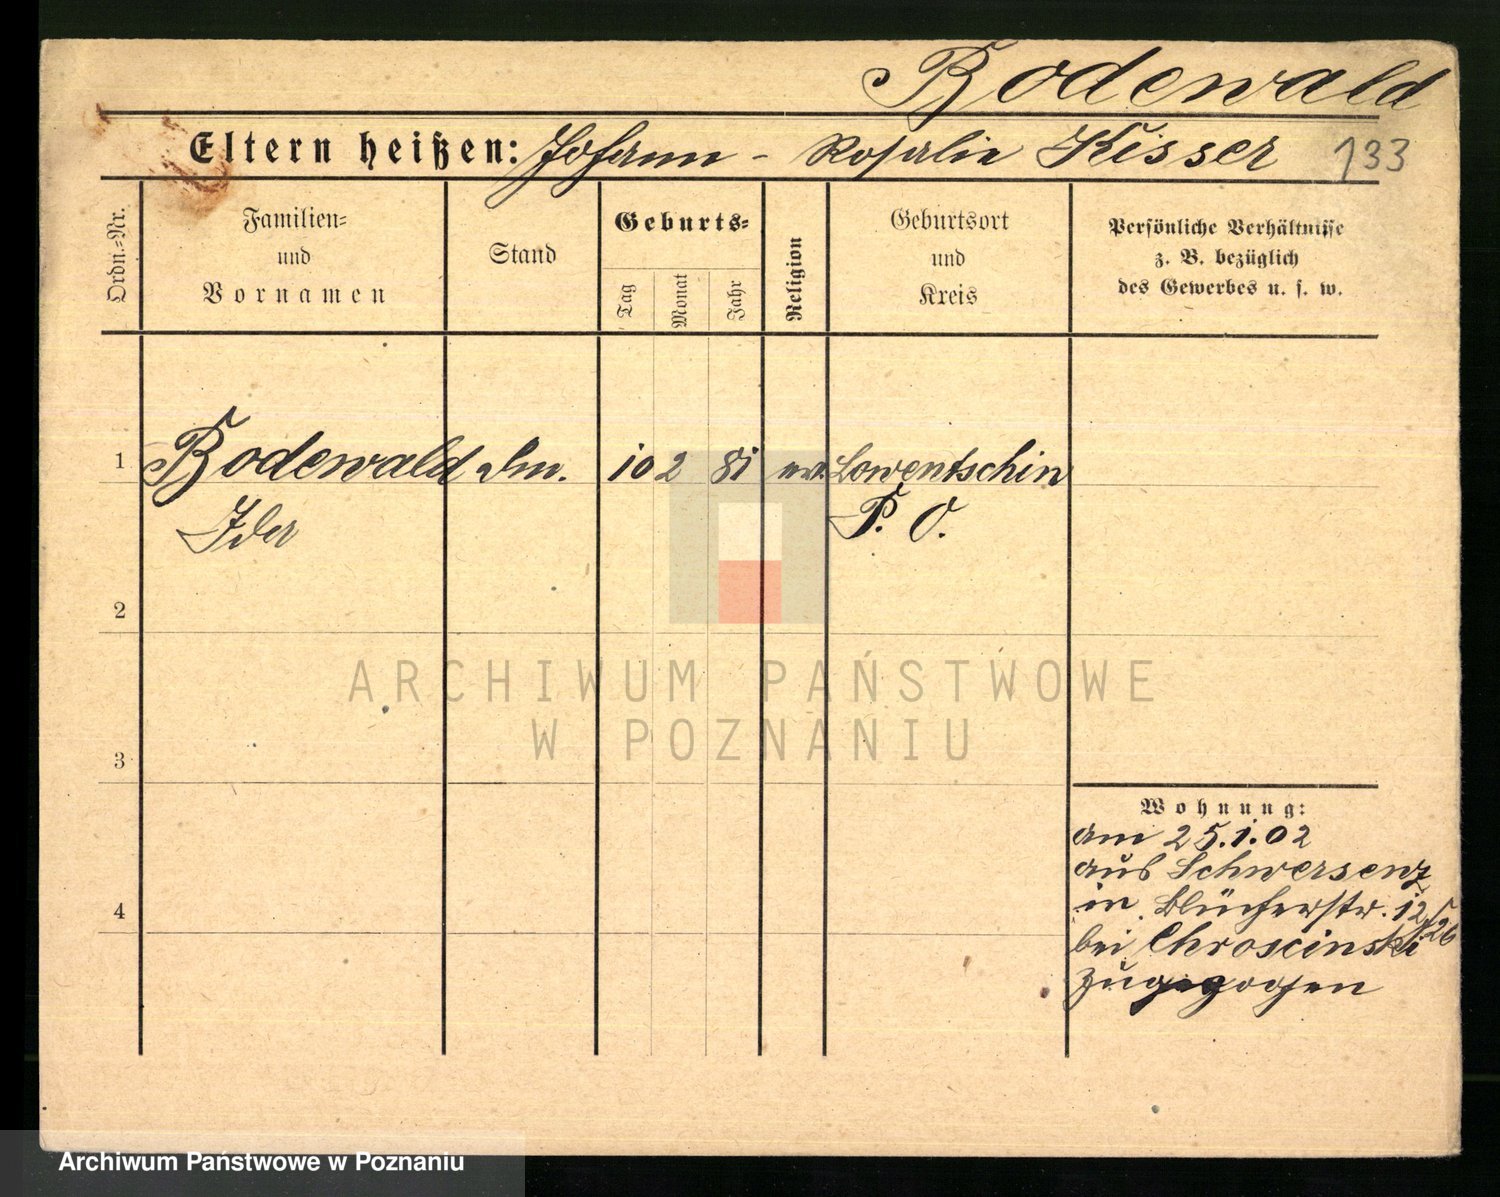 Bodewald
Eltern heißen: Johann - Rosalie Kisser 133
Ordn.-Nr.
Familien-
und
Vornamen
Stand
Geburts-
Tag
Monat
Jahr
Religion
Geburtsort
und
Kreis
Persönliche Verhältnisse
z. B. bezüglich
des Gewerbes u. s. w.
1 Bodewald 10 2 81 Lowentschin
Ida P. O.
2
3
4
Wohnung:
am 25.1.02
aus Schwersenz
in Blücherstr. 12
bei Chroscinski
zugezogen
ARCHIWUM PAŃSTWOWE
W POZNANIU
Archiwum Państwowe w Poznaniu